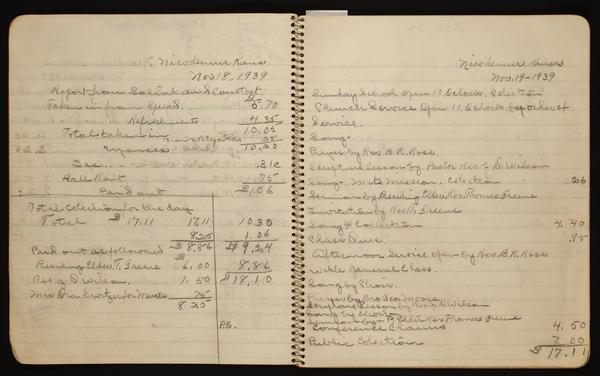 Nicodemus Kans.
Nov 18, 1939
Report from Social and Contest
Taken in from Quod. 5.70
" " " Refreshments 4.35
Total taken in 10.05
10.30
Expenses
Ice .31¢
Hall Rent .75
Paid out $1.06
Total Colection for the day
Total $17.11 17.11 10.30
8.25 1.06
Paid out as followed $8.86 $9.24
Presiding Elder, T. Greene 6.00 8.86
Res. D. Wilson. 1.50 $18.10
Mrs Ora Switzer for meals .75
8.25
P.S.
Nicodemus, Kansas
Nov. 19-1939
Sunday School open 10 Oclock, Colection
Church Service Open 11. Oclock, by order of
Service.
Song.
Prayer by Rev. B.R. Ross.
Scripture Lesson by Pastor Rev. D. Wilson
Song. Colection .26
Sermon by Presiding Elder, Rev. Thomas Greene
Invitation by Rev. T. Greene
Song & Collection 4.40
Class Dues. .95
Afternoon Service Open by Rev. B.R. Ross
with General Class.
Song by Choir.
Prayer by Bro Ben Moore
Scripture Lesson by Rev. D Wilson
Song by Choir
Sermon by P. Elder Rev Thomas Greene
Conference Claims 4.50
Public Colection 7.00
$17.11